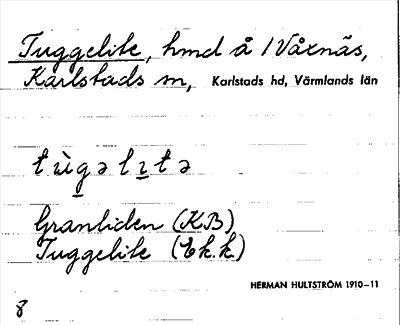 Tuggelite, hmd å /Våxnäs,
Karlstads sn, Karlstads hd, Värmlands län
tùgəlɪtə
Granliden (KB)
Tuggelite (Ek.k.)
HERMAN HULTSTRÖM 1910–11
8